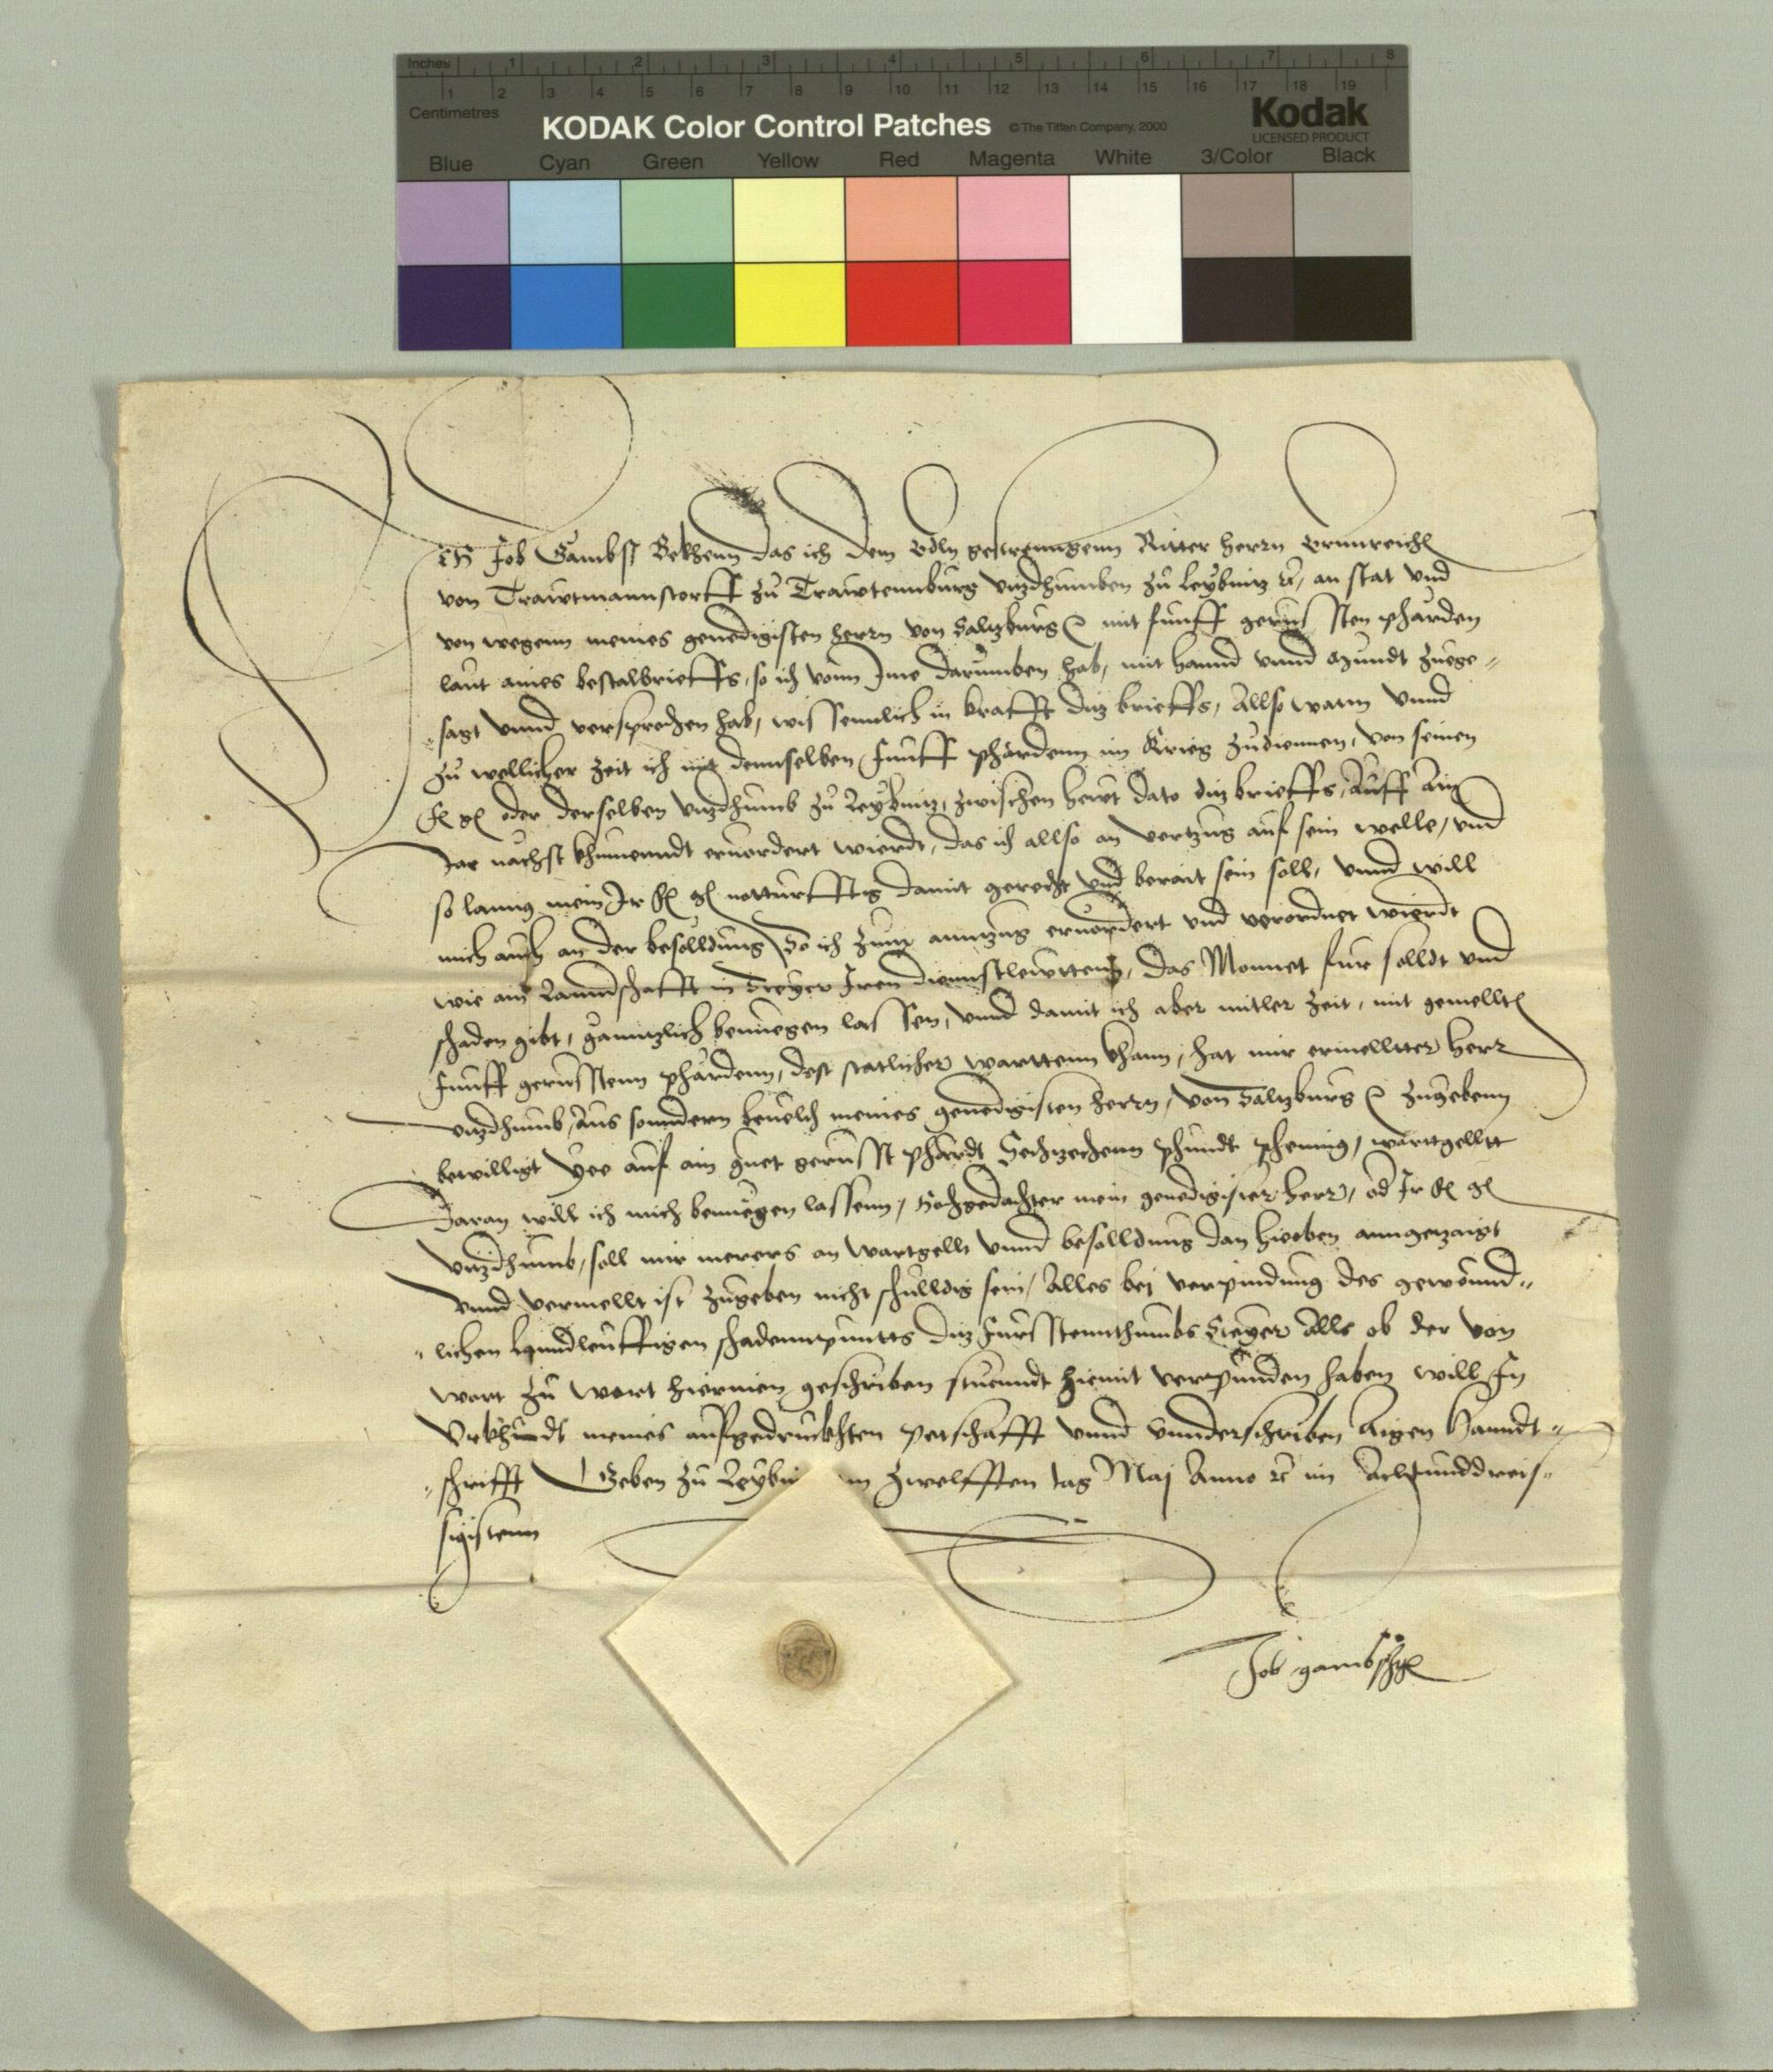 Inches 1 2 3 4 5 6 7 8
1 2 3 4 5 6 7 8 9 10 11 12 13 14 15 16 17 18 19
Centimetres
KODAK Color Control Patches © The Tiffen Company, 2000 Kodak
LICENSED PRODUCT
Blue Cyan Green Yellow Red Magenta White 3/Color Black
ICH Job Gambss Bekhenn das ich dem Edln gestrenngenn Ritter herrn Ernnreich
von Trawtmannstorff zu Trawtennburg vitzdhumben zu Leybnitz etc, an stat vnd
von wegenn meines genedigisten herrn von Saltzburg etc mit funff gerussten phärden
laut aines bestalbrieffs, so ich vonn Ime darumben hab, mit hannd vnnd Mundt zuege-
-sagt vnnd versprochen hab, wissenndlich in krafft ditz brieffs, Allso wann vnnd
zu wellicher zeit ich mit dennselben funff phärdenn im Krieg zudiennen, von seinen
f g oder derselben vitzdhumb zu Leybnitz, zwischen hewt dato ditz brieffs, Auff ain
Jar nächst khumenndt eruordert wierdt, das ich allso an vertzug auf sein welle, vnd
so lanng mein Ir f g notturfftig damit gerecht vnd berait sein soll, vnnd will
mich auch an der besolldung So ich zum anntzug eruordert vnd verordnet wierdt
wie ain Lanndschafft in Steyer Iren diennstlewtten, das Monnet fur solldt vnd
schaden gibt, ganntzlich benuegen lassen, vnnd damit ich aber mitler zeit, mit gemellt
funff gerusstenn phärdenn, dest statlicher warttenn khann, hat mir ermellter herr
vitzdhumb, Aus sonndern beuelch meines genedigisten herrn, von Saltzburg etc zugebenn
bewilligt yee auf ain guet gerusst phärdt Sechzechenn phundt phening, warttgellt
Daran will ich mich benuegen lassenn, Hochgedachter mein genedigister herr, od Ir f g
vitzdhumb, soll mir merers an wartgellt vnnd besolldung dan hieoben anngezaigt
vnnd vermellt ist zugeben nicht schulldig sein, Alles bej verpindung des gewonnd-
-lichen Lanndleuffigen schadennpunts ditz Furstennthumbs Steyer Alls ob der von
wort zu wort hierinen geschriben stuenndt hiemit verpunden haben will In
Vrkhundt meines aufgedruckhten petschafft vnnd vnnderschriben Aigen Hanndt-
-schrifft Geben zu Leybn am zwelfften tag Maj Anno etc im Achtunddreis-
sigistenn
Job gambss